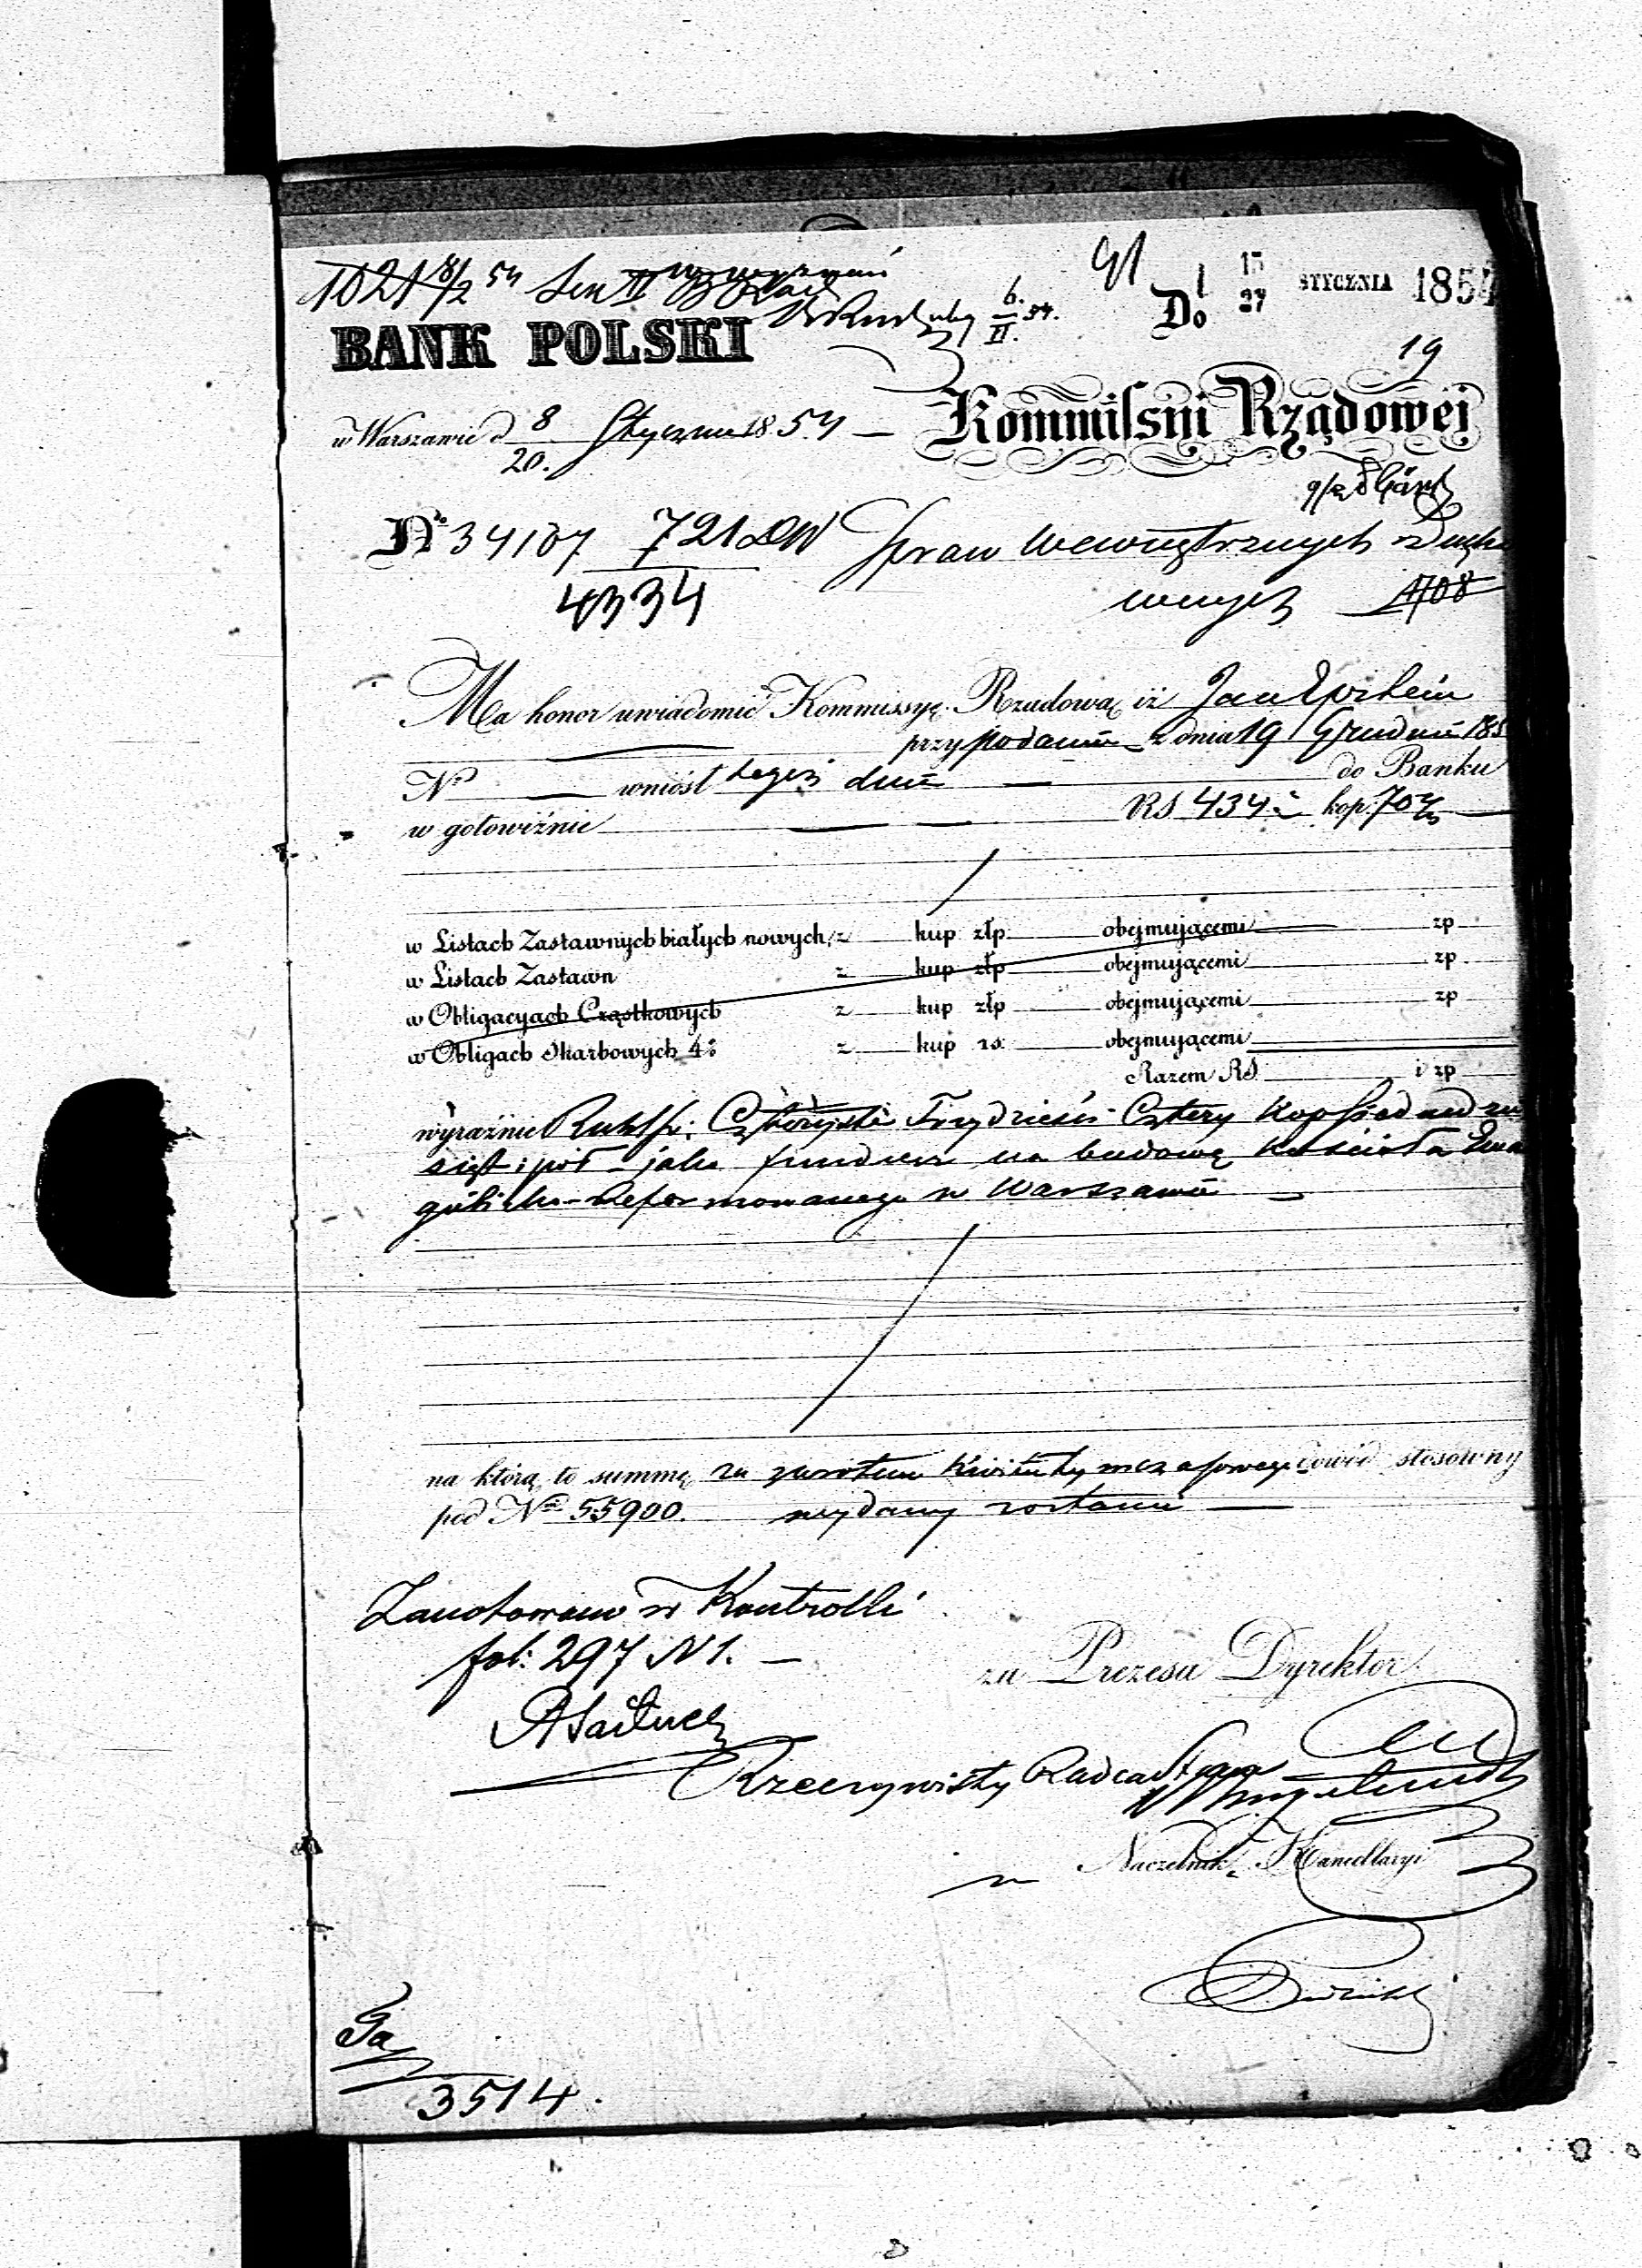 1021 8/2 54
91
15
27 STYCZNIA 1854
BANK POLSKI
6/II. 54.
Do
19
w Warszawie d 8/20. Stycznia 1854 —
Kommissyi Rządowej
No 34107 721 DW
4334
Spraw Wewnętrznych i Ducho
wnych 1708
Ma honor uwiadomić Kommissyę Rządową iż Jan Epstein
przy podaniu z dnia 19 Grudnia 185
No — wniósł tegoż dnia — do Banku
w gotowiźnie — RS 434 kop. 70½
w Listach Zastawnych białych nowych z kup złp obejmującemi zp
w Listach Zastawn z kup złp obejmującemi zp
w Obligacyach Cząstkowych z kup złp obejmującemi zp
w Obligach Skarbowych 4% z kup rs. obejmującemi
Razem RS i zp
wyraźnie Rubli sr: Czterysta Trzydzieści Cztery Kop Siedmdzie
siąt i pół – jako fundusz na budowę Kościoła Ewa
gielicko-Reformowanego w Warszawie —
na którą to summę za zwrotem Kwitu tymczasowego dowód stosowny
pod Nem 55900. wydany zostanie —
Zanotowano w Kontrolli
fol: 297 N 1. —
za Prezesa Dyrektor
Rzeczywisty Radca Stanu
Naczelnik Kancellaryi
3514.